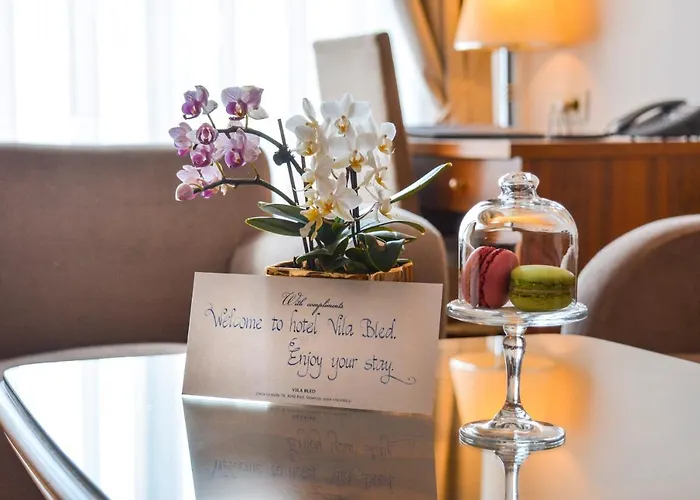 With compliments
Welcome to hotel Vila Bled.
Enjoy your stay.
VILA BLED